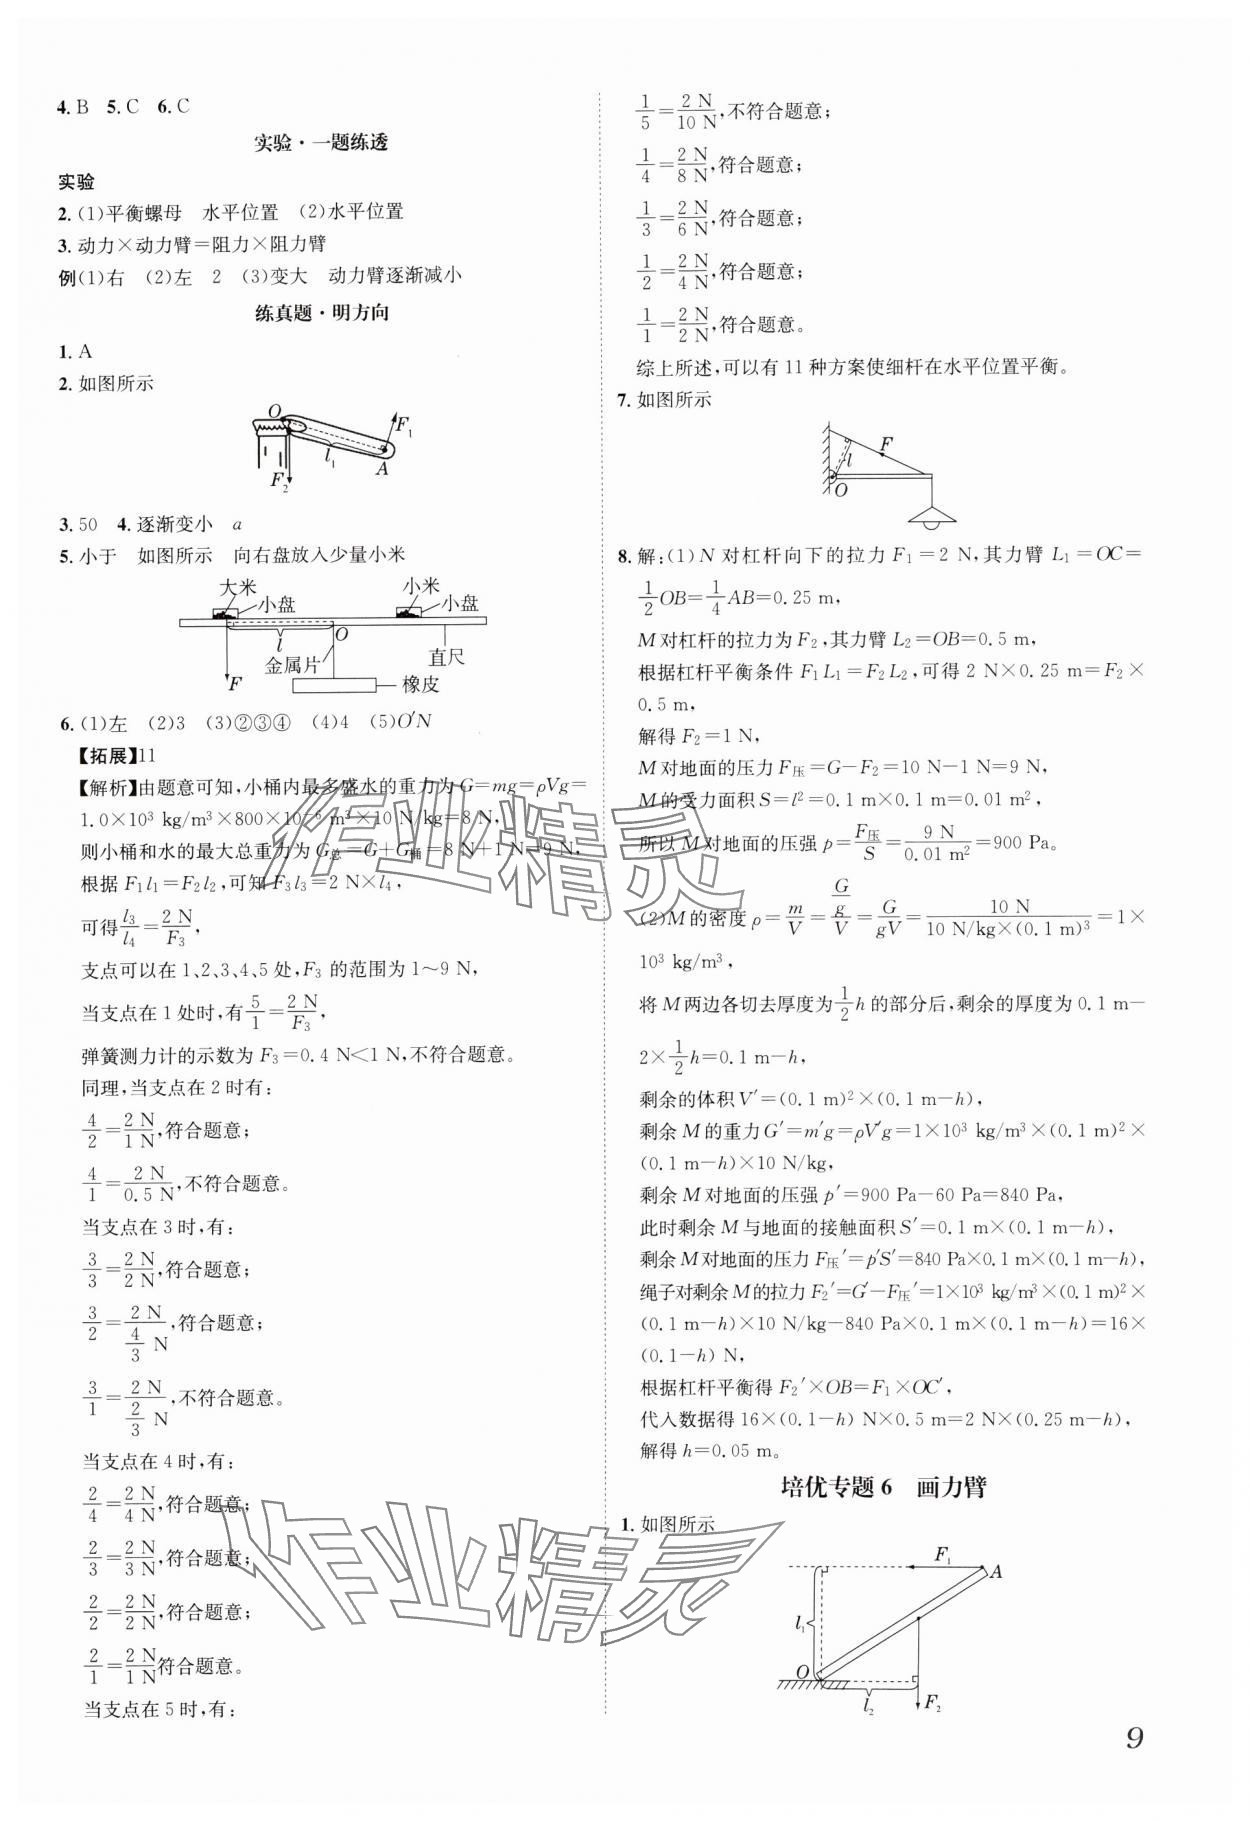 4. B  5. C  6. C
实验·一题练透
实验
2. (1)平衡螺母  水平位置  (2)水平位置
3. 动力×动力臂=阻力×阻力臂
例(1)右  (2)左  2  (3)变大  动力臂逐渐减小
练真题·明方向
1. A
2. 如图所示
O
F₁
l₁
A
F₂
3. 50  4. 逐渐变小  a
5. 小于  如图所示  向右盘放入少量小米
大米  小米
小盘  小盘
l  O
金属片  直尺
F  橡皮
6. (1)左  (2)3  (3)②③④  (4)4  (5)O′N
【拓展】11
【解析】由题意可知,小桶内最多盛水的重力为G=mg=ρVg=
1.0×10³ kg/m³×800×10⁻⁶ m³×10 N/kg=8 N,
则小桶和水的最大总重力为G总=G+G桶=8 N+1 N=9 N,
根据F₁l₁=F₂l₂,可知F₃l₃=2 N×l₄,
可得l₃/l₄=2 N/F₃,
支点可以在1、2、3、4、5处,F₃的范围为1~9 N,
当支点在1处时,有5/1=2 N/F₃,
弹簧测力计的示数为F₃=0.4 N<1 N,不符合题意。
同理,当支点在2时有:
4/2=2 N/1 N,符合题意;
4/1=2 N/0.5 N,不符合题意。
当支点在3时,有:
3/3=2 N/2 N,符合题意;
3/2=2 N/(4/3 N),符合题意;
3/1=2 N/(2/3 N),不符合题意。
当支点在4时,有:
2/4=2 N/4 N,符合题意;
2/3=2 N/3 N,符合题意;
2/2=2 N/2 N,符合题意;
2/1=2 N/1 N符合题意。
当支点在5时,有:
1/5=2 N/10 N,不符合题意;
1/4=2 N/8 N,符合题意;
1/3=2 N/6 N,符合题意;
1/2=2 N/4 N,符合题意;
1/1=2 N/2 N,符合题意。
综上所述,可以有11种方案使细杆在水平位置平衡。
7. 如图所示
F
l
O
8. 解:(1)N对杠杆向下的拉力F₁=2 N,其力臂L₁=OC=
1/2OB=1/4AB=0.25 m,
M对杠杆的拉力为F₂,其力臂L₂=OB=0.5 m,
根据杠杆平衡条件F₁L₁=F₂L₂,可得2 N×0.25 m=F₂×
0.5 m,
解得F₂=1 N,
M对地面的压力F压=G-F₂=10 N-1 N=9 N,
M的受力面积S=l²=0.1 m×0.1 m=0.01 m²,
所以M对地面的压强p=F压/S=9 N/0.01 m²=900 Pa。
(2)M的密度ρ=m/V=(G/g)/V=G/gV=10 N/(10 N/kg×(0.1 m)³)=1×
10³ kg/m³,
将M两边各切去厚度为1/2h的部分后,剩余的厚度为0.1 m-
2×1/2h=0.1 m-h,
剩余的体积V′=(0.1 m)²×(0.1 m-h),
剩余M的重力G′=m′g=ρV′g=1×10³ kg/m³×(0.1 m)²×
(0.1 m-h)×10 N/kg,
剩余M对地面的压强p′=900 Pa-60 Pa=840 Pa,
此时剩余M与地面的接触面积S′=0.1 m×(0.1 m-h),
剩余M对地面的压力F压′=p′S′=840 Pa×0.1 m×(0.1 m-h),
绳子对剩余M的拉力F₂′=G′-F压′=1×10³ kg/m³×(0.1 m)²×
(0.1 m-h)×10 N/kg-840 Pa×0.1 m×(0.1 m-h)=16×
(0.1-h) N,
根据杠杆平衡得F₂′×OB=F₁×OC′,
代入数据得16×(0.1-h) N×0.5 m=2 N×(0.25 m-h),
解得h=0.05 m。
培优专题6  画力臂
1. 如图所示
F₁
A
l₁
O
F₂
l₂
9
作业精灵
作业精灵